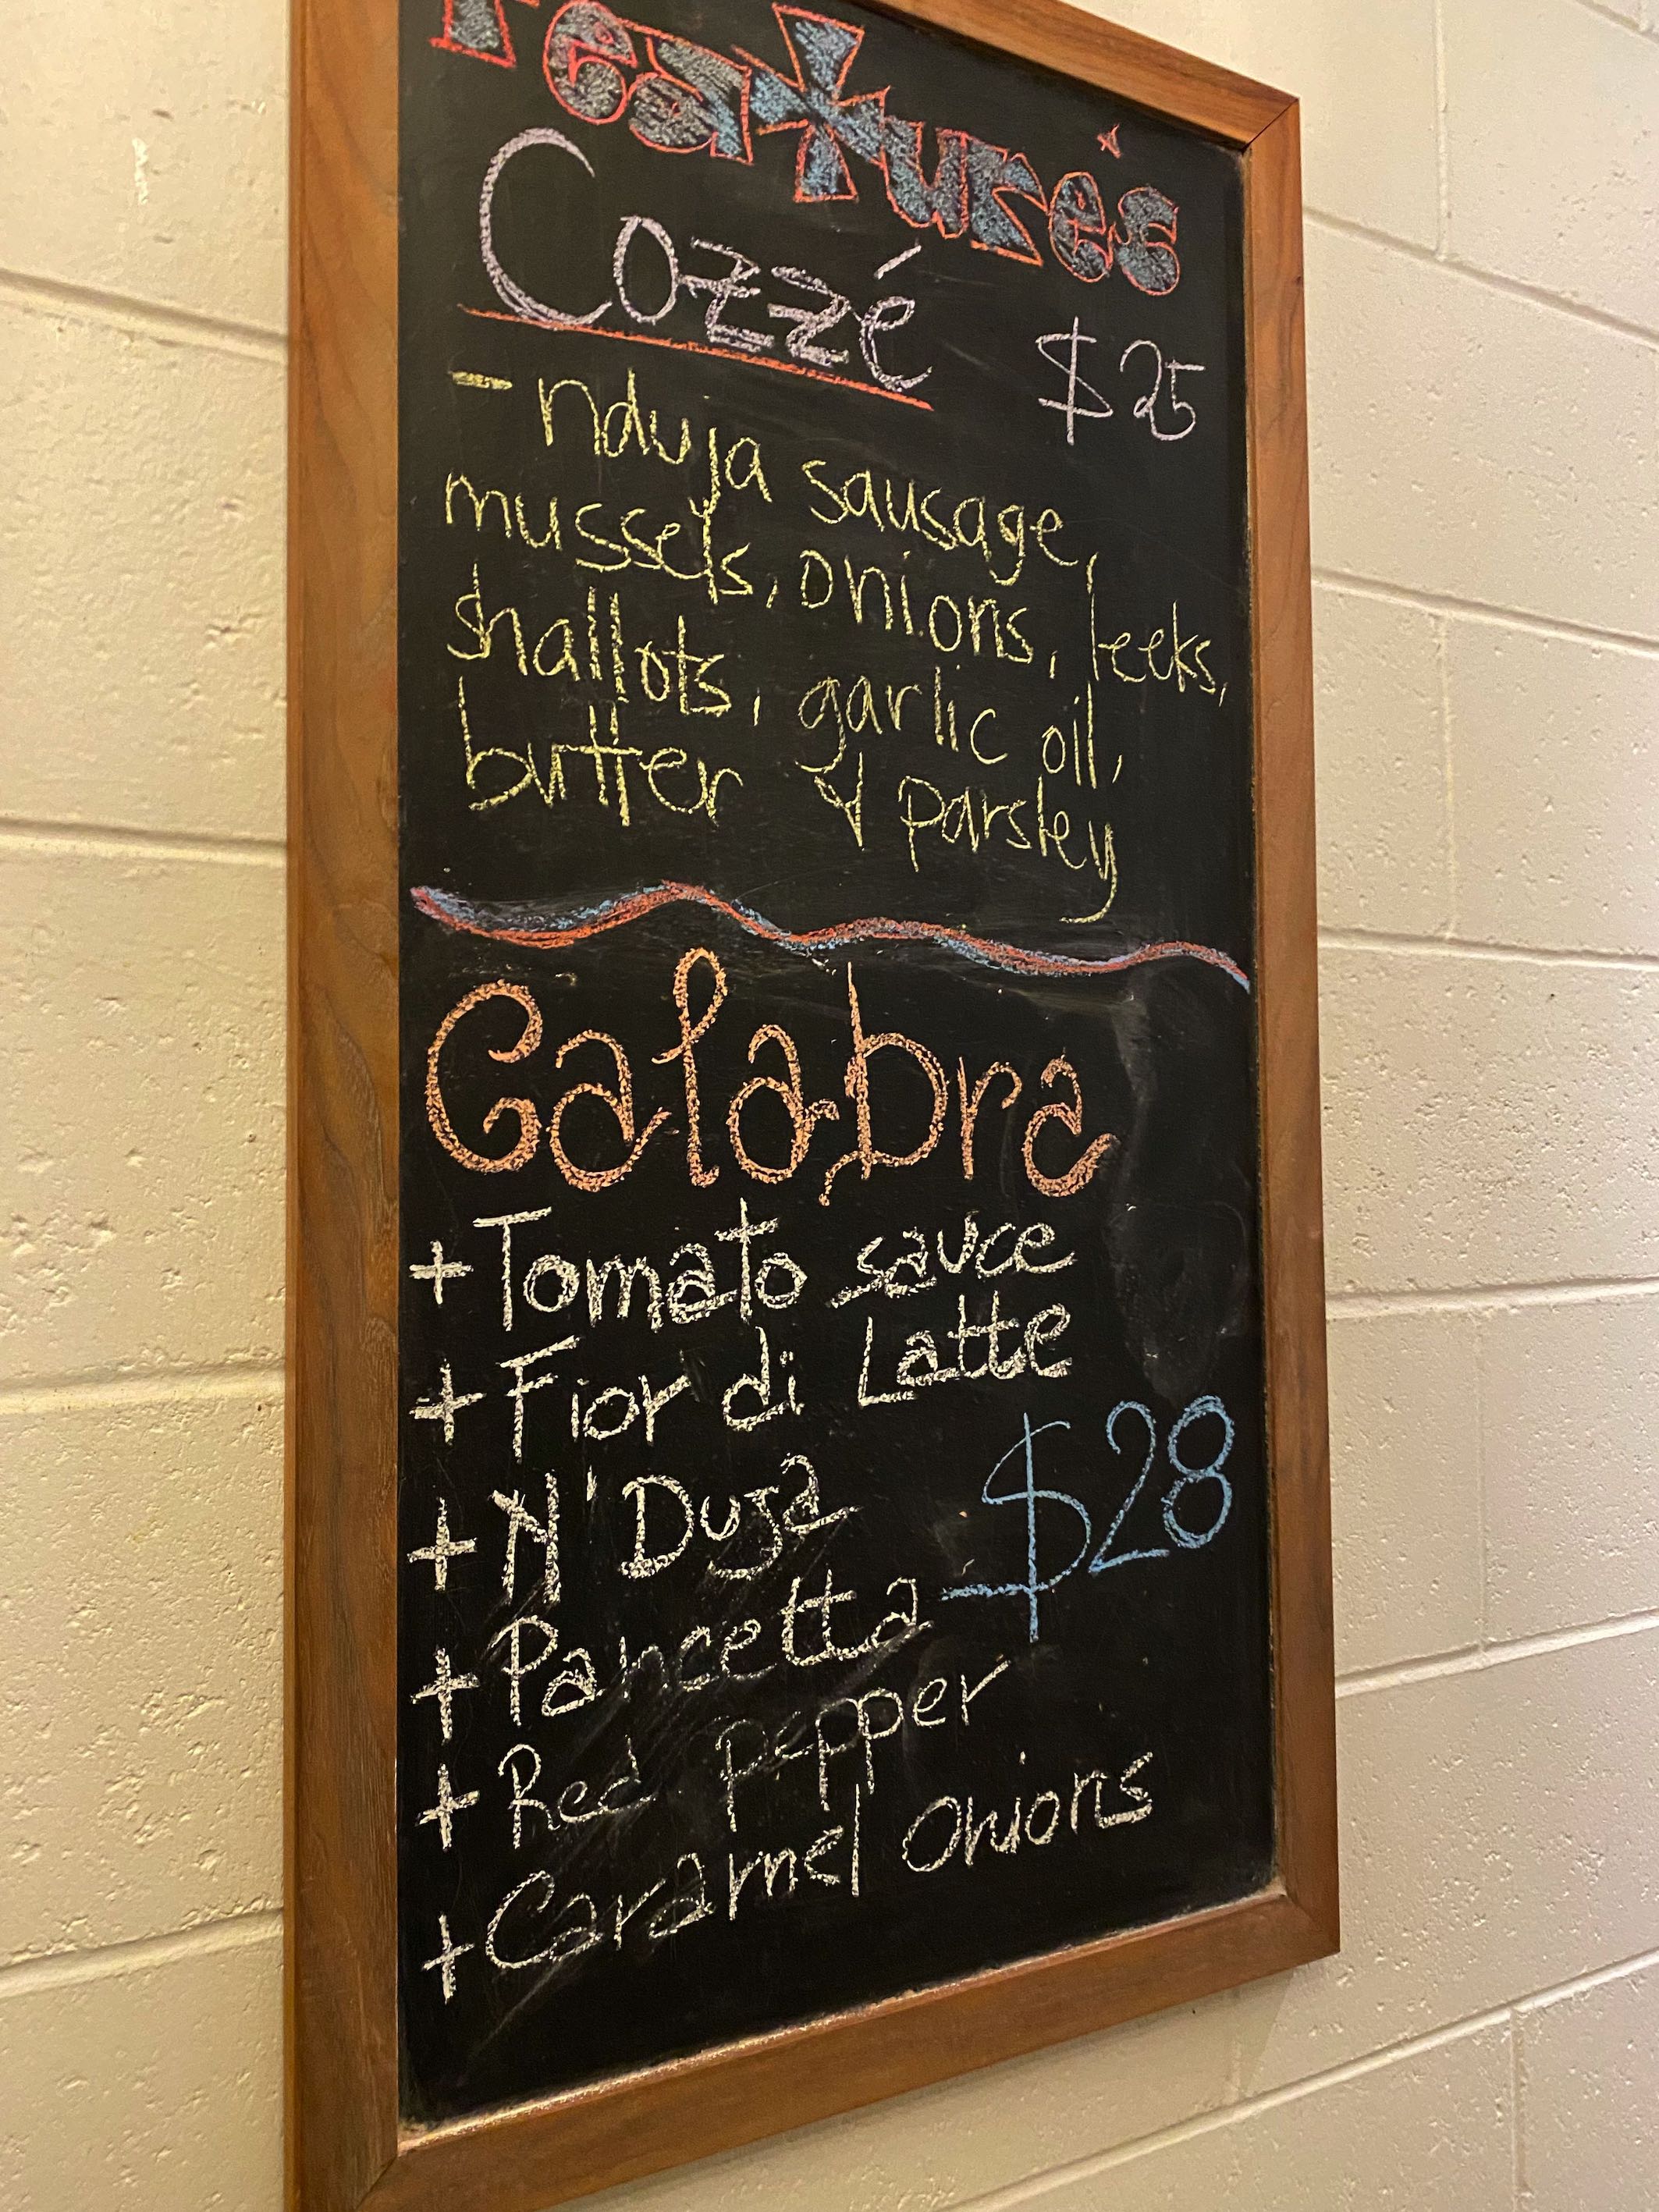 Features
Cozzé $25
- nduja sausage,
mussels, onions, leeks,
shallots, garlic oil,
butter & parsley
Calabra
+ Tomato sauce
+ Fior di Latte
+ N'Duja $28
+ Pancetta
+ Red pepper
+ Caramel Onions